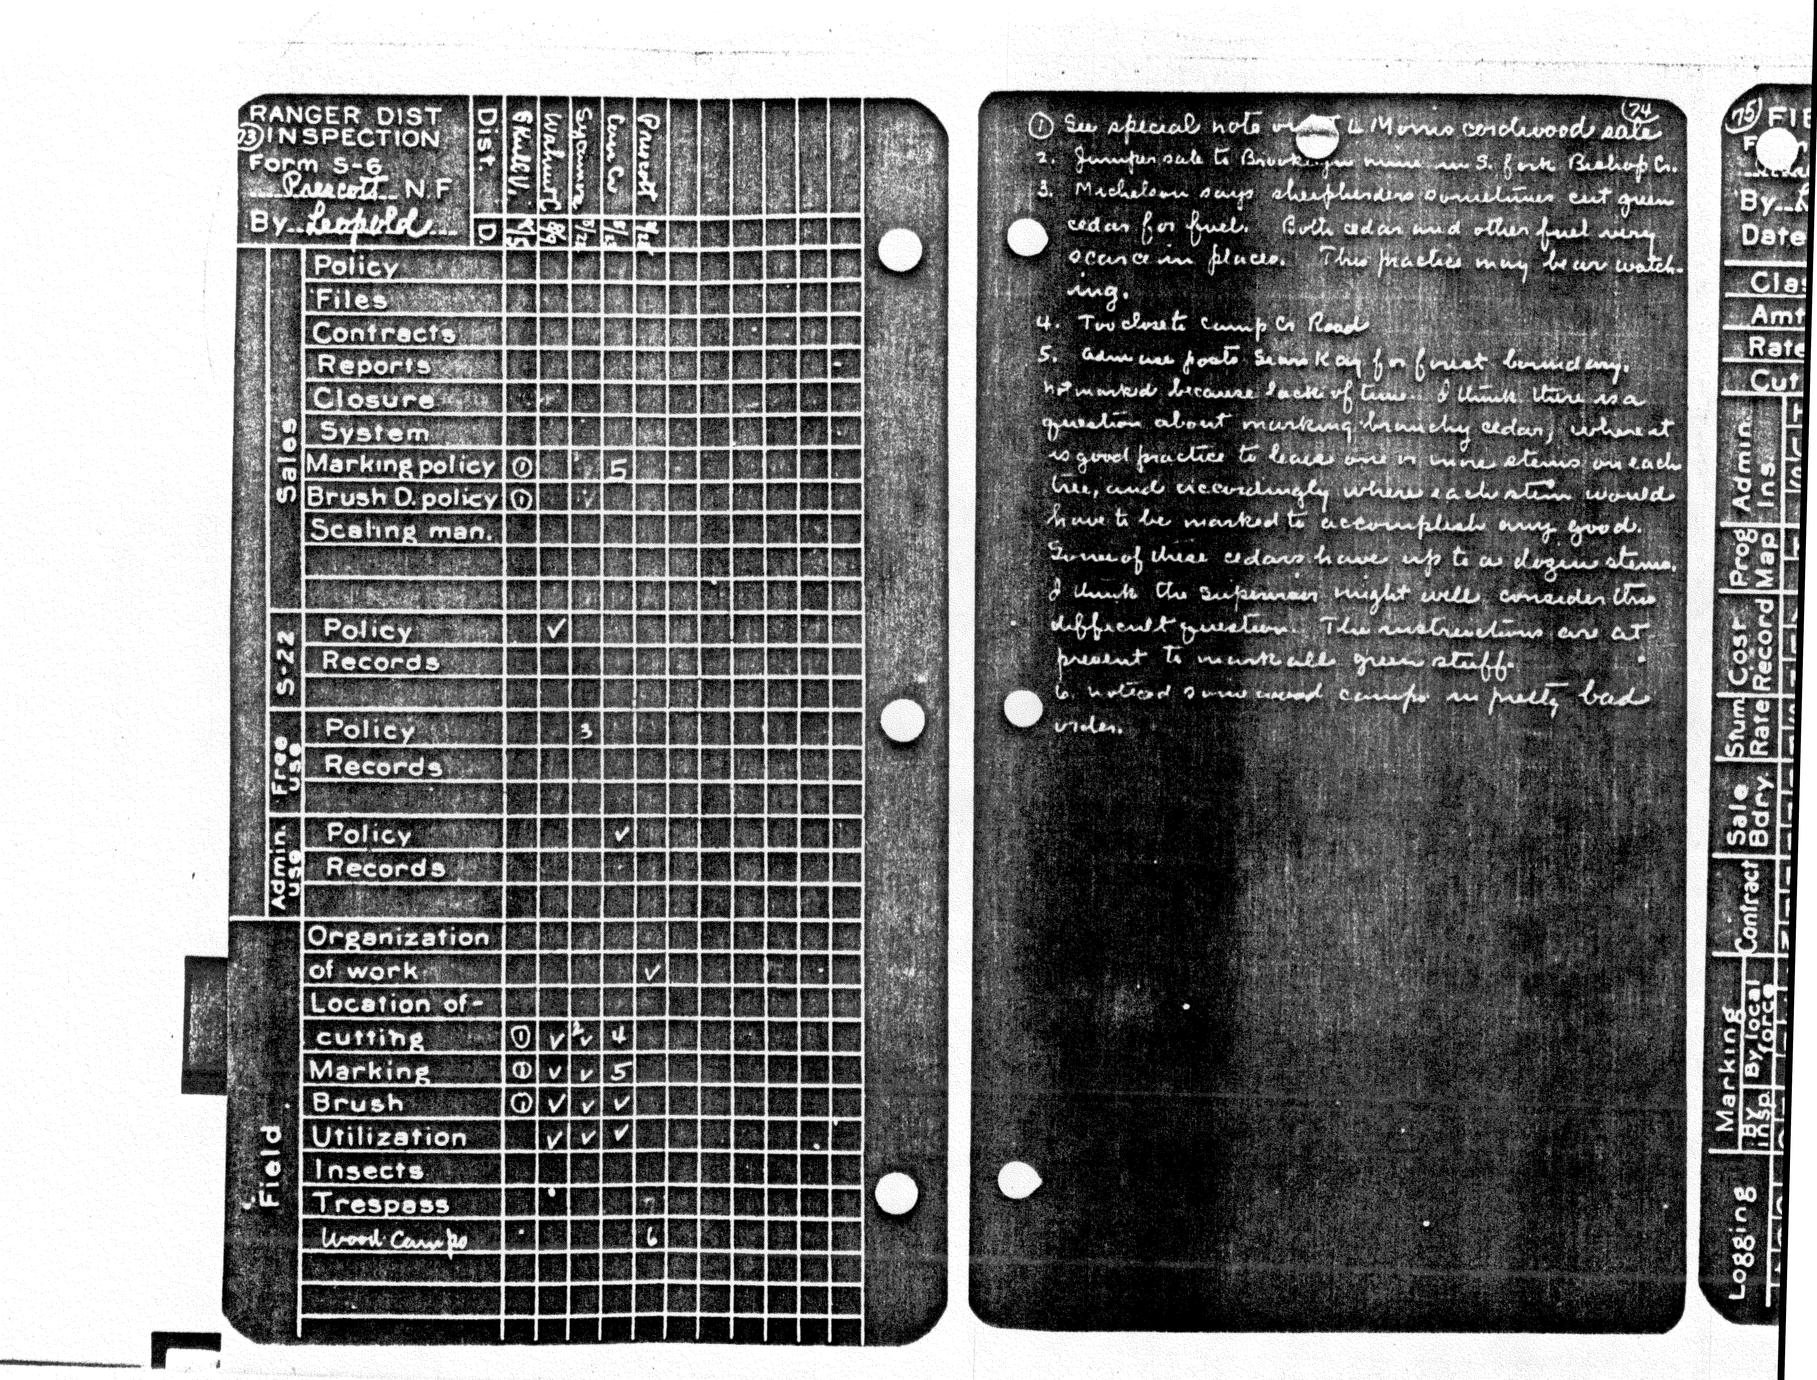 RANGER DIST
73 INSPECTION
Form S-6
Prescott N.F
By Leopold
Dist.
Skull V.
Walnut C
Sycamore
Camp Cr
Prescott
D.
8/5
8/9
8/22
8/23
Sales
Policy
Files
Contracts
Reports
Closure
System
Marking policy ① 5
Brush D. policy ① ✓
Scaling man.
S-22
Policy ✓
Records
Free use
Policy 3
Records
Admin. use
Policy ✓
Records
Field
Organization
of work ✓
Location of-
cutting ① ✓ 2✓ 4
Marking ① ✓ ✓ 5
Brush ① ✓ ✓ ✓
Utilization ✓ ✓ ✓
Insects
Trespass
Wood Camps 6
74
① See special note Morris cordwood sale
2. Juniper sale to Brooklyn mine in S. fork Bishop Cr.
3. Michelson says sheepherders sometimes cut green
cedar for fuel. Both cedar and other fuel very
scarce in places. This practice may bear watch-
ing.
4. Too close to Camp Cr Road
5. Adm use posts Sears Kay for forest boundary.
Not marked because lack of time. I think there is a
question about marking branchy cedar, where it
is good practice to leave one or more stems on each
tree, and accordingly where each stem would
have to be marked to accomplish any good.
Some of these cedars have up to a dozen stems.
I think the Supervisor might well consider this
difficult question. The instructions are at
present to mark all green stuff.
6. Noticed some wood camps in pretty bad
order.
75
By
Date
Rate
Cut
Admin.
Ins.
Prog
Map
Cost
Record
Stum
Rate
Sale
Bdry
Contract
Marking
By local force
By insp
Logging